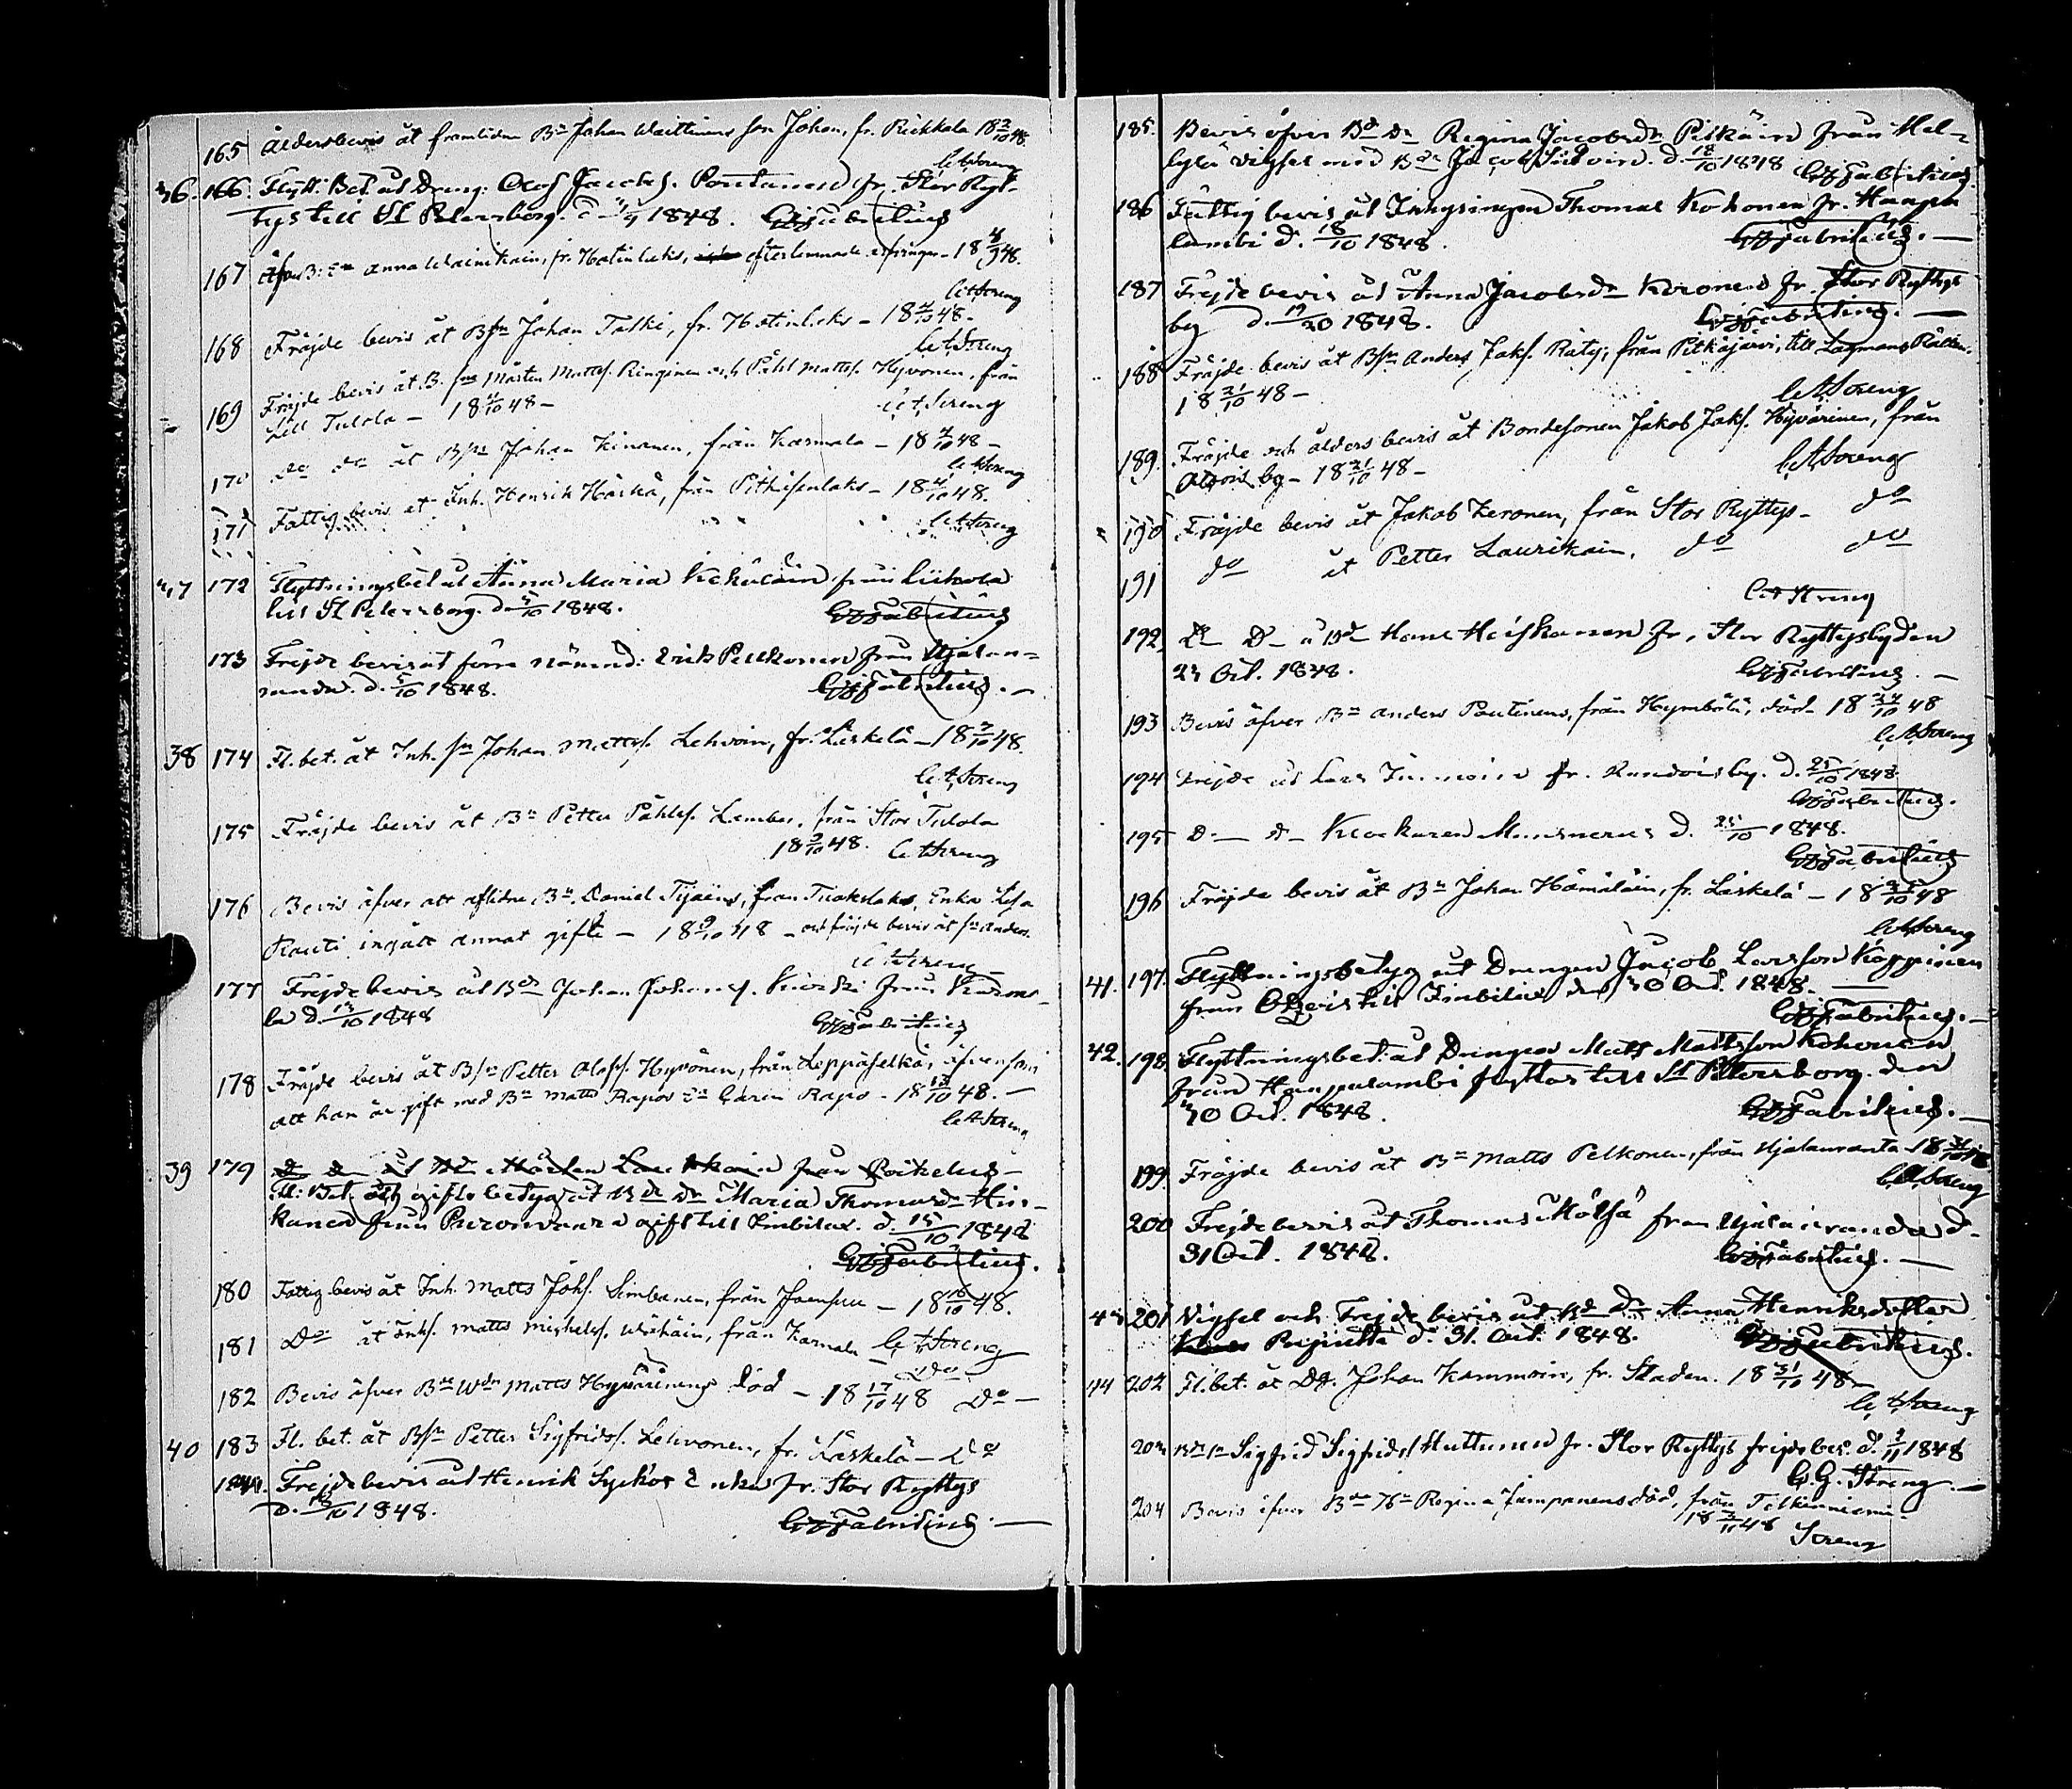 165 Åldersbevis åt framlidne Bn Johan Waittinens son Johan, fr. Riekkala 18 2/10 48.
C. A. Streng
36. 166. Flytt. Bet. åt Dreng. Olof Jacobs. Pontanen fr. Stor Ryt-
tys till St Petersborg. d. 1848. G. G. Fabritius
167 Öfver B: En Anna Wainikain, fr. Hotinlaks, efterlemnade arfvingar - 18 48.
C. A. Streng
168 Fräjde bevis åt Bsn Johan Taski, fr. Hotinlaks - 18 4/10 48 -
C. A. Streng
169 Fräjde bevis åt B. sne Mårten Matts. Ringinen och Påhl Matts. Hyvonen, från
Lill Tulola - 18 4/10 48 - C. A. Streng
170 Do do åt Bsn Johan Kinanen, från Karmala - 18 4/10 48 -
C. A. Streng
171 Fattig bevis åt Inh. Henrik Härkä, från Pitkäsenlaks - 18 4/10 48.
C. A. Streng
37 172 Flyttningsbet åt Anna Maria Kekäläin från Liikola
till St Petersborg. d. 5/10 1848. G. G. Fabritius
173 Frejde bevis åt förre nämnd: Erik Pelkonen från Ujalan-
randa. d. 5/10 1848. G. G. Fabritius. -
38 174 Fl. bet. åt Inh. sn Johan Matts. Lehvoin, fr. Läskelä - 18 7/10 48.
C. A. Streng
175 Fräjde bevis åt Bn Petter Påhls. Lember, från Stor Tulola
18 9/10 48. C. A. Streng
176 Bevis öfver att aflidne Bn Daniel Tijäins, från Tuokslaks, Enka Lisa
Rauti ingått annat gifte - 18 9/10 48 - och fräjde bevis åt sn Anders.
C. A. Streng
177 Frejde bevis åt Bdn Johan Johans. Kurki från
la d. 13/10 1848 G. G. Fabritius
178 Fräjde bevis åt Bsn Petter Olofs. Hyvönen, från Leppäselkä, äfvensom
att han är gift med Bn Matts Rapos En Carin Rapo - 18 13/10 48. -
C. A. Streng
39 179 D D åt Bd Mårten från
Fl: Bet. och gifte betyg åt Bde Dr Maria Thomasdr Hir-
kanen från Puronvaara gift till Imbilax. d. 15/10 1848
G. G. Fabritius.
180 Fattig bevis åt Inh. Matts Johs. Simbanen, från Joensuu - 18 16/10 48.
181 Do åt Inhs. Matts Mickels. Wäxäin, från Karmala - C. A. Streng
182 Bevis öfver Bn Wdr Matts Hyvärinens död - 18 17/10 48 Do -
40 183 Fl. bet. åt Bsn Petter Sigfrids. Lehvonen, fr. Läskelä - Do
184. Frejde bevis åt Henrik Syrkös Enka fr. Stor Ryttys
d. 18/10 1848. G. G. Fabritius. -
185. Bevis öfver Bd dr Regina Jacobsdr Pitkäin från Hel-
lylä vigsel med Bdn Jacob d. 18/10 1848 G. G. Fabritius
186 Fattig bevis åt Inhysingen Thomas Kohonen fr. Haapa
lambi d. 18/10 1848. G. G. Fabritius. -
187 Frejde bevis åt Anna Jacobsdr Koronen fr. Stor Ryttys
by d. 19/10 1848. G. G. Fabritius. -
188 Fräjde bevis åt Bsn Anders Jaks. Räty, från Pitkäjärvi, till Lagmans Rätten.
18 21/10 48 - C. A. Streng
189. Fräjde och ålders bevis åt Bondesonen Jakob Jaks. Hyvärinen, från
Otsois by - 18 21/10 48 - C. A. Streng
190 Fräjde bevis åt Jakob Keronen, från Stor Ryttys - do
191 do åt Petter Laurikain. do do
C. A. Streng
192. D D å Bd Hans Heiskanen fr. Stor Ryttysbyden
23 Oct. 1848. G. G. Fabritius. -
193 Bevis öfver Bn Anders Pautinens, från Hymbölä, död - 18 24/10 48
C. A. Streng
194 Frejde åt Lars Immoin fr. Rundois by. d. 25/10 1848.
G. G. Fabritius.
195 D - D - Klockaren d. 25/10 1848.
G. G. Fabritius
196 Fräjde bevis åt Bn Johan Hämäläin, fr. Läskelä - 18 25/10 48
C. A. Streng
41. 197. Flyttningsbetyg åt Drengen Jacob Larsson Koppinen
från Otsois till Imbilax den 30 Oct. 1848. -
G. G. Fabritius. -
42. 198. Flyttningsbet: åt Drengen Matts Mattsson Kohonen
från Haapalambi flyttas till St Petersborg. den
30 Oct. 1848. G. G. Fabritius. -
199. Fräjde bevis åt Bn Matts Pelkonen, från Ujalanranta 18 31/10 48
C. A. Streng
200 Frejdebevis åt Thomas Mölsä från Ujalanranda d.
31 Oct. 1848. G. G. Fabritius. -
43 201 Vigsel och Frejde bevis åt Bd Dr Anna Henriksdotter
d. 31. Oct. 1848. G. G. Fabritius.
44 202 Fl. bet. åt Dg. Johan Kammoin, fr. Staden. 18 31/10 48 -
C. A. Streng
203 Bdsn Sigfrid Sigfrids. Huttunen fr. Stor Ryttys frejdebev. d. 2/11 1848
G. G. Streng. -
204 Bevis öfver Bdn Hu Regina Jumpanens död, från Telkinniemi -
18 3/11 48 Streng